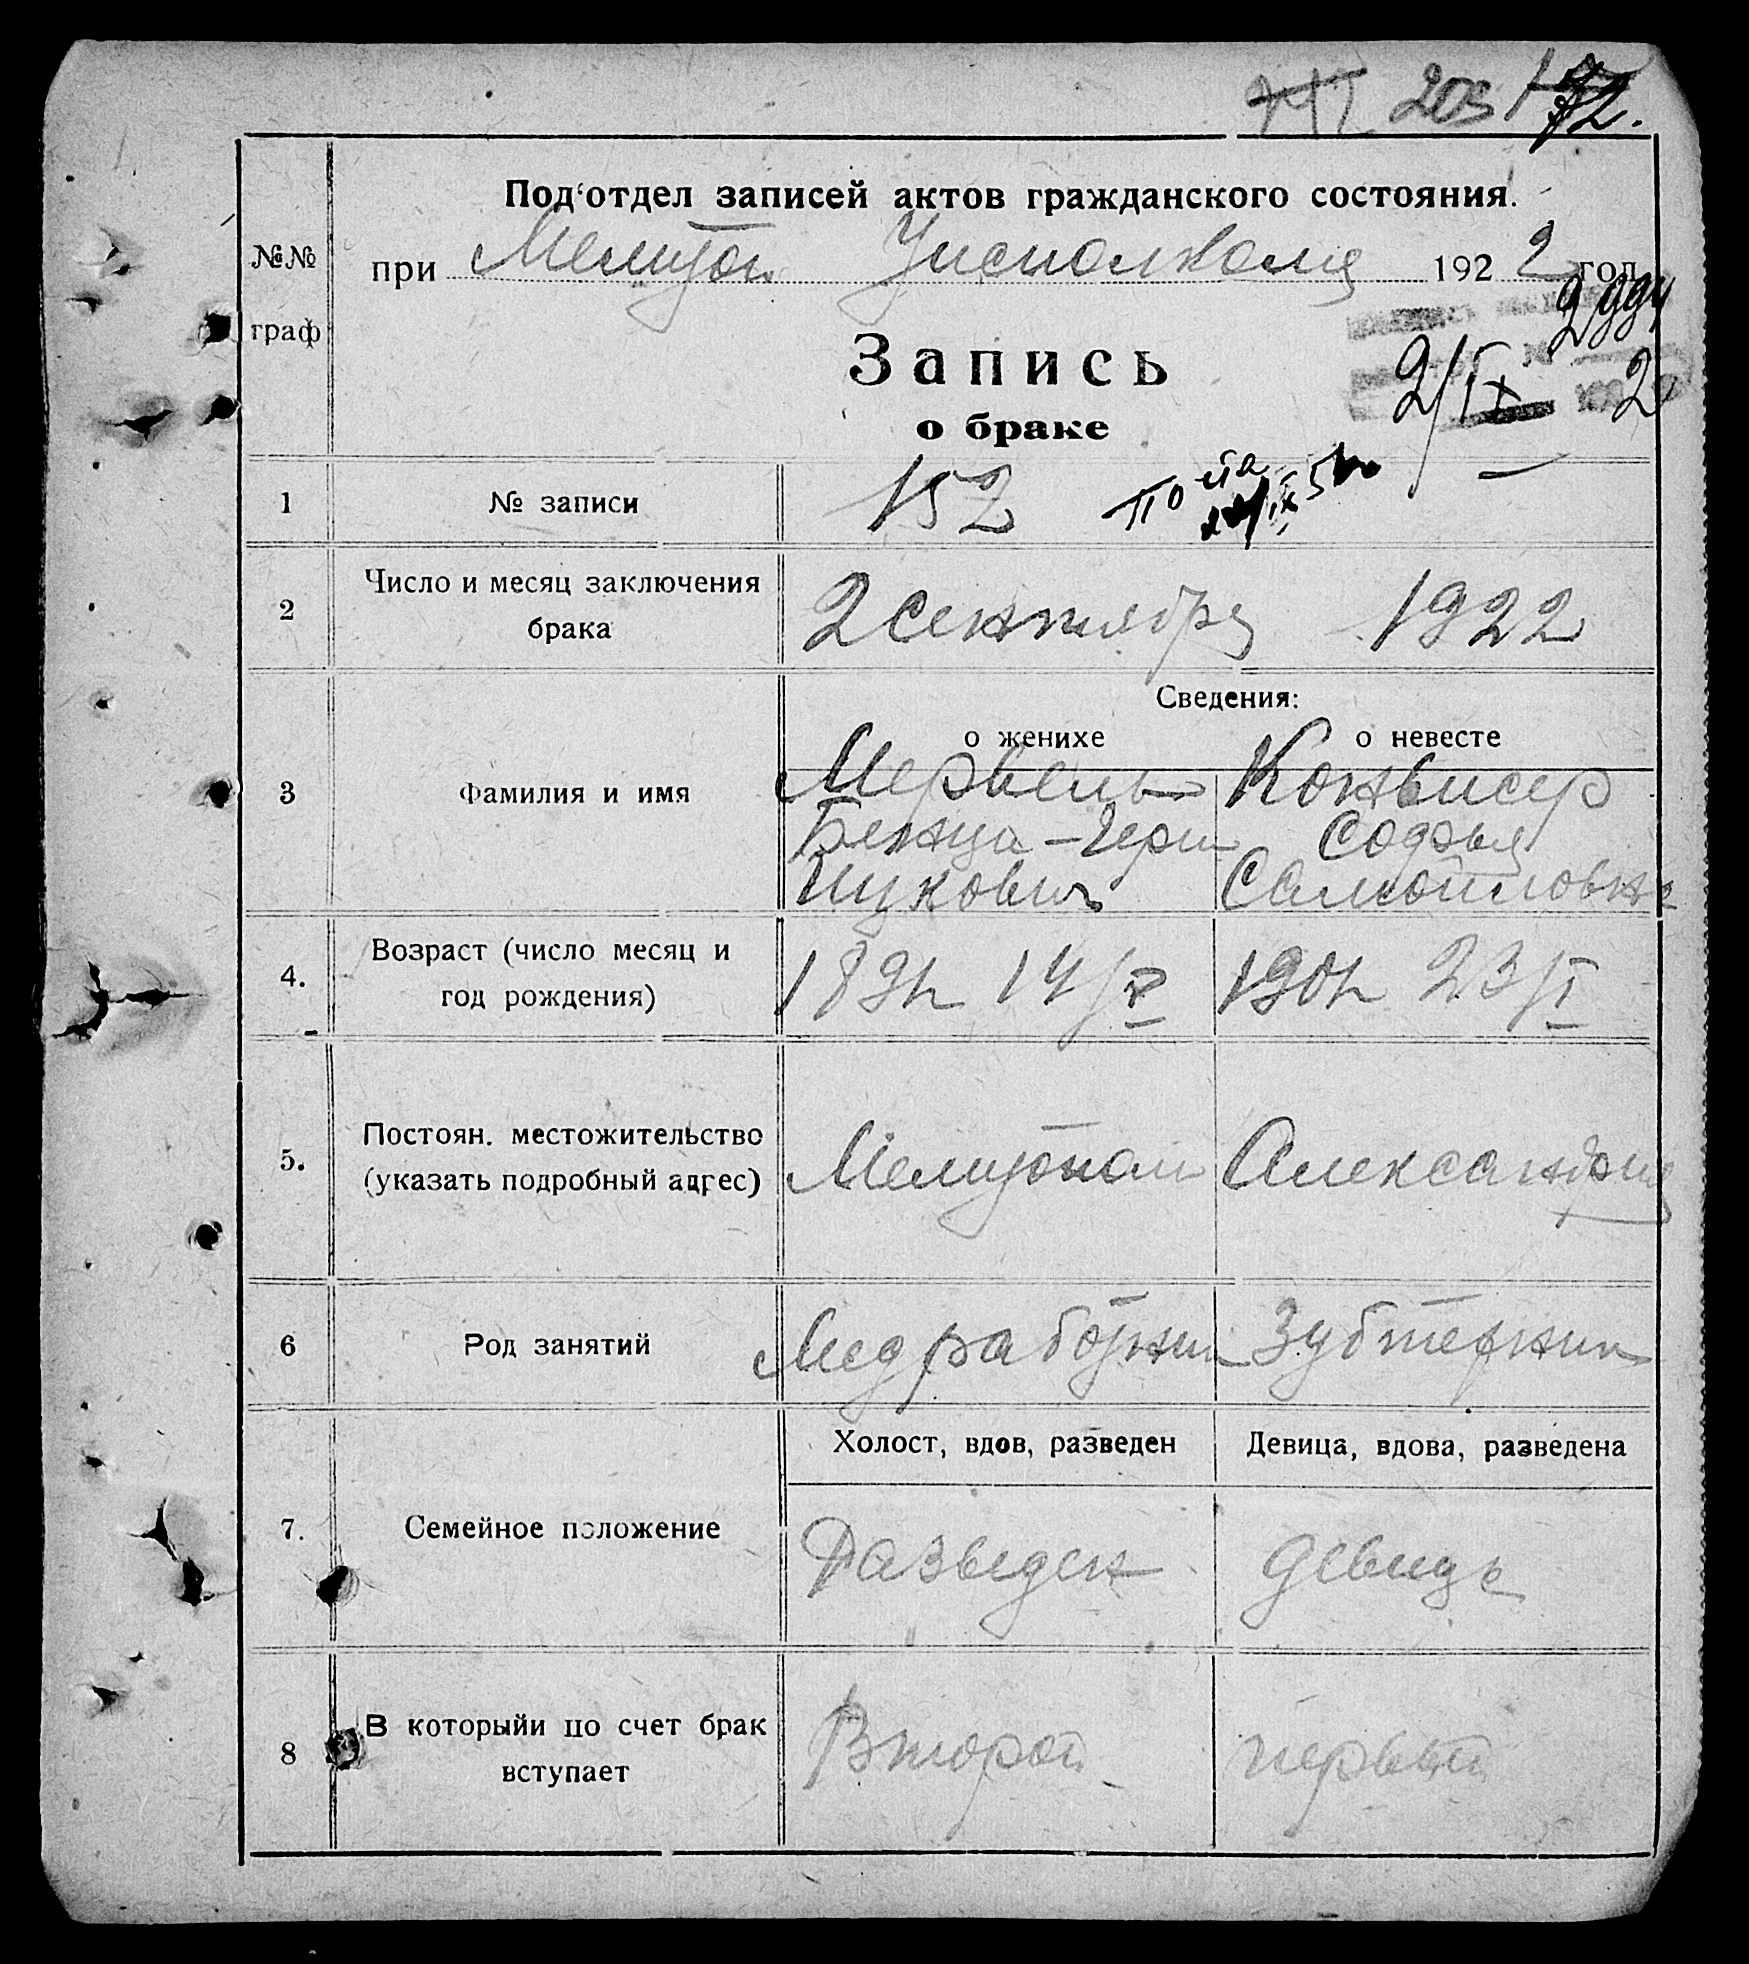 203 172.
Под'отдел записей актов гражданского состояния.
№№ граф
при Мелитоп Уисполкома 1922 год
Запись
2/IX 2
о браке
1 № записи 152
2 Число и месяц заключения брака 2 сентября 1922
Сведения:
о женихе о невесте
3 Фамилия и имя
Софья
Самойловна
4. Возраст (число месяц и год рождения) 14/V 23/I
5. Постоян. местожительство (указать подробный адрес) Мелитополь
6 Род занятий Медработник Зубтехник
Холост, вдов, разведен Девица, вдова, разведена
7. Семейное положение Разведен девица
8 В которыйи по счет брак вступает Второй первый